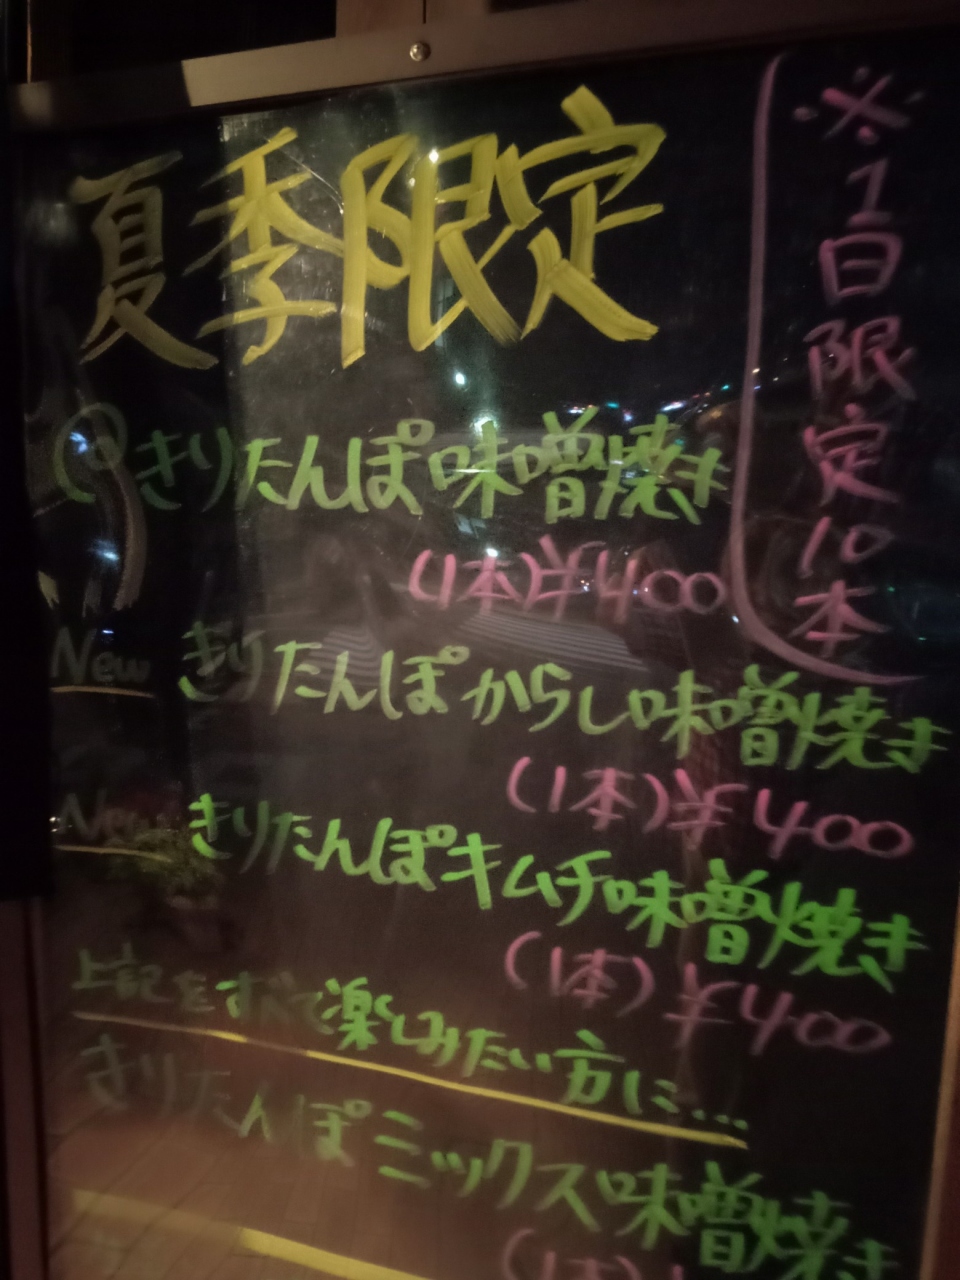 夏季限定
※1日限定10本
きりたんぽ味噌焼き
(1本)¥400
New きりたんぽからし味噌焼き
(1本)¥400
New きりたんぽキムチ味噌焼き
(1本)¥400
上記をすべて楽しみたい方に…
きりたんぽミックス味噌焼き
(1本)